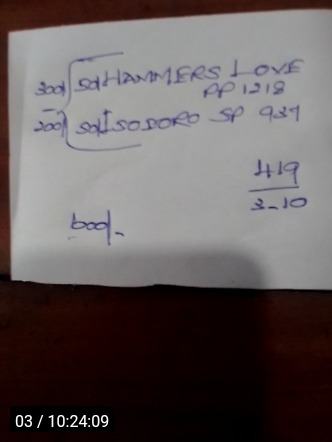 300/ Sd HAMMERS LOVE
PP 1218
200/ Sd ISODORO SP 937
419
3-10
600/-
03 / 10:24:09